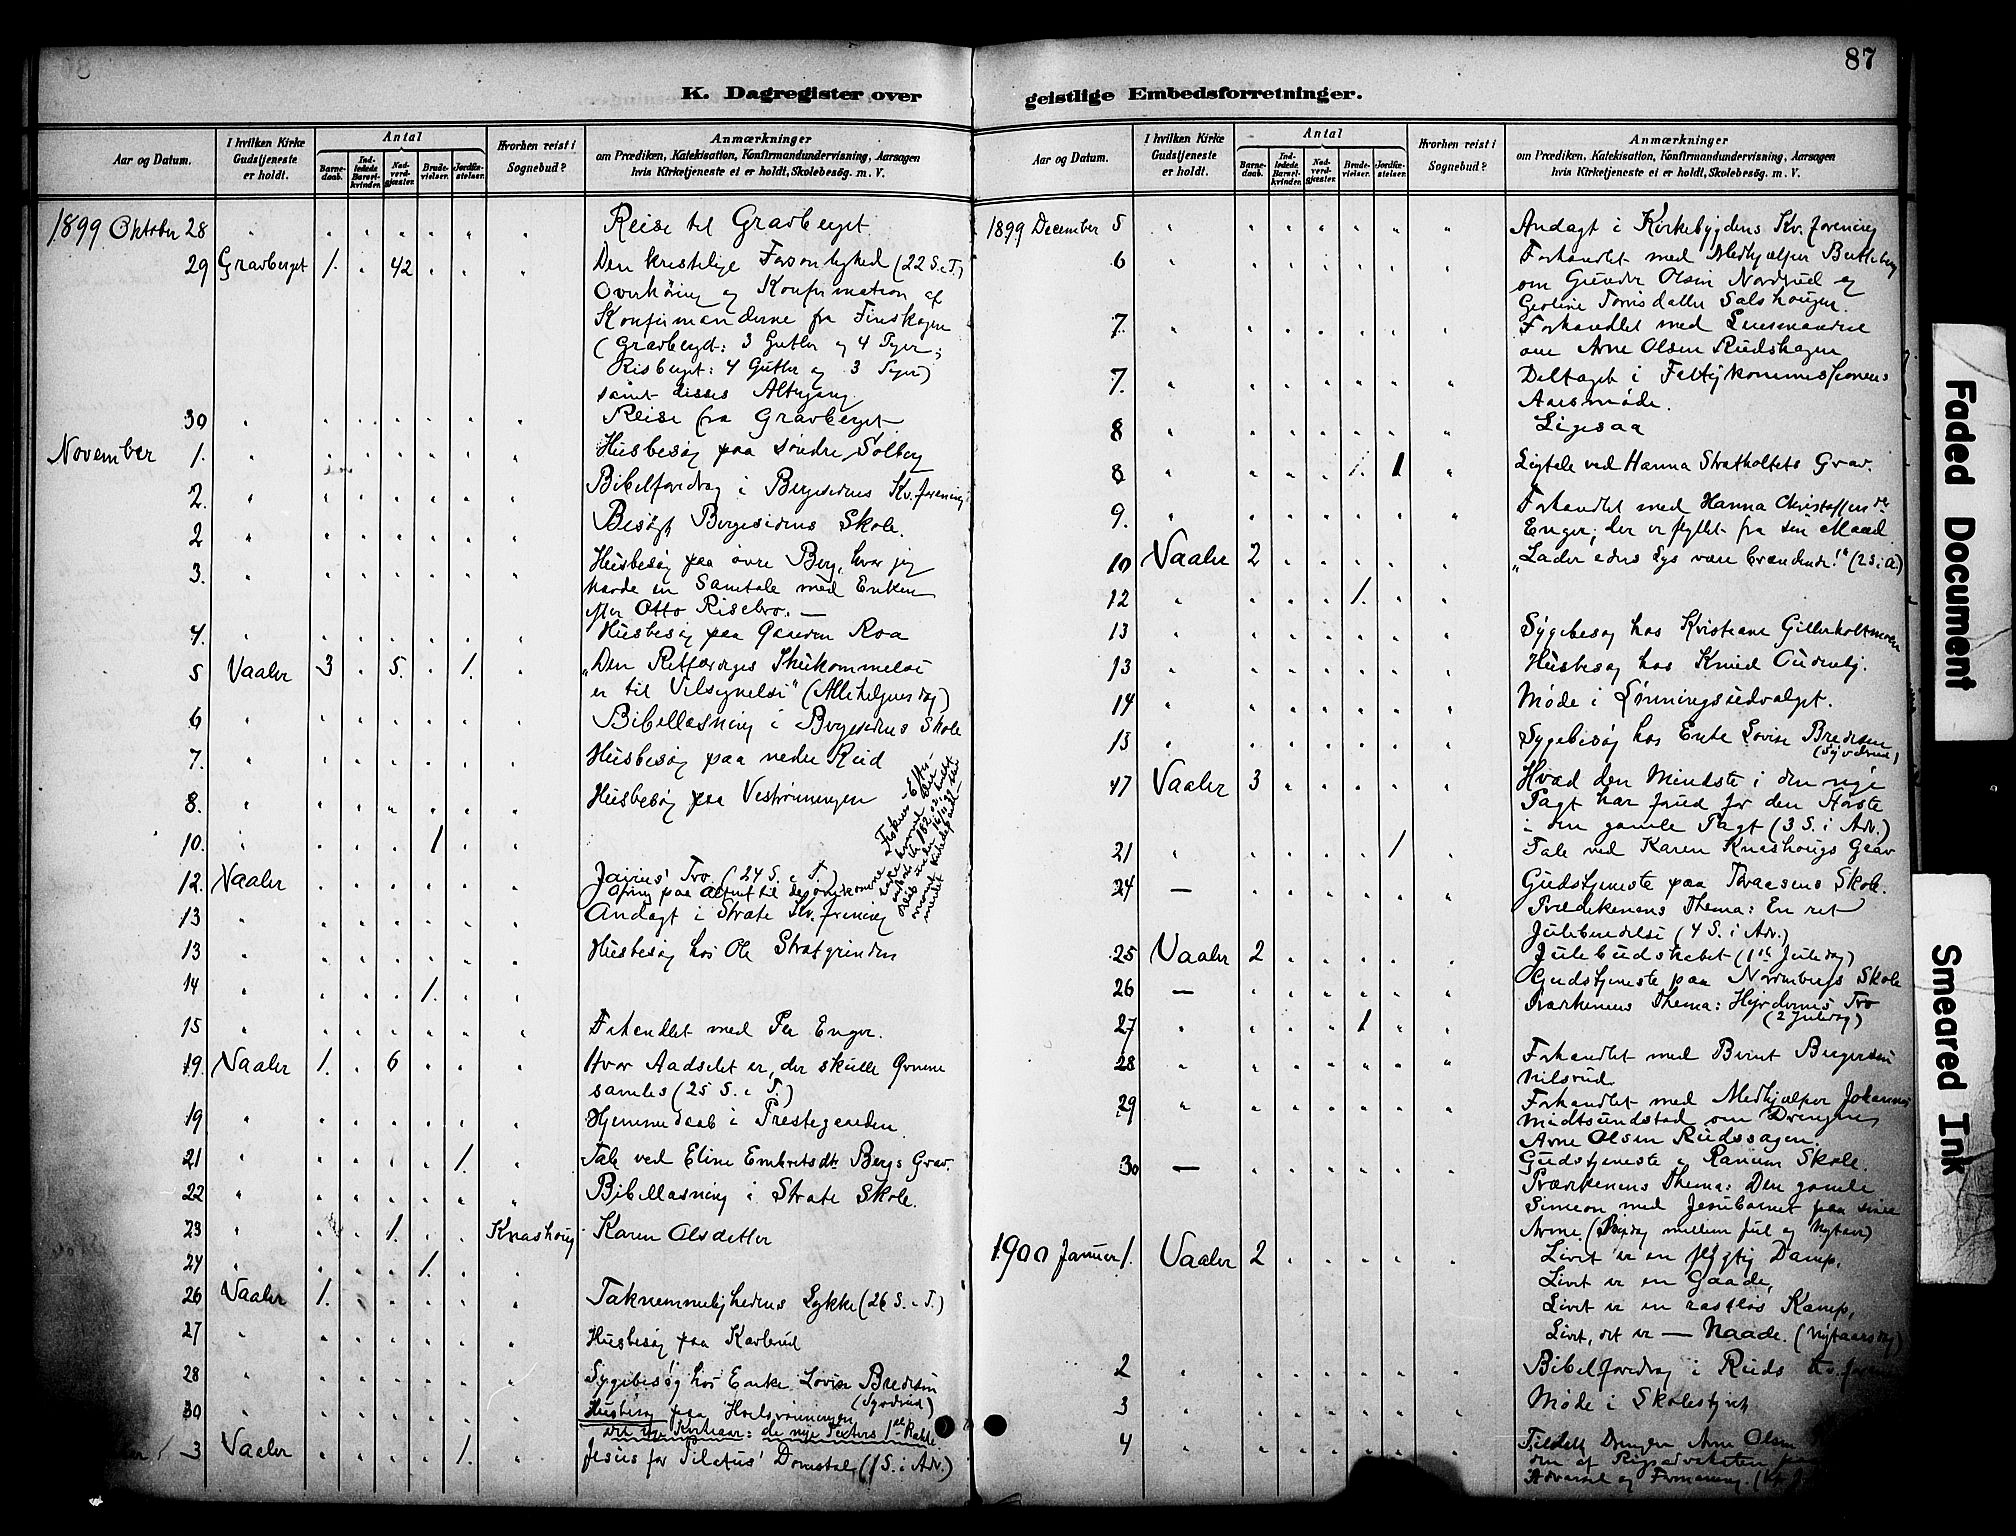 87
K. Dagregister over geistlige Embedsforretninger.
Aar og Datum.
I hvilken Kirke Gudstjeneste er holdt.
Antal
Barne-daab.
Ind-ledede Barsel-kvinder.
Nad-verd-gjæster.
Brude-vielser.
Jordfæ-stelser.
Hvorhen reist i Sognebud?
Anmærkninger
om Prædiken, Katekisation, Konfirmandundervisning, Aarsagen
hvis Kirketjeneste ei er holdt, Skolebesøg. m. V.
1899 Oktober 28 Reise til Gravberget
29 Gravberget 1. 42 Den kristelige Forsonlighed (22 S.e.T.)
Overhøring og Konfirmation af
Konfirmanderne fra Finskogen
(Gravberget: 3 Gutter og 4 Piger;
Risberget: 4 Gutter og 3 Piger)
samt disses Altergang
30 Reise fra Gravberget
November 1. Husbesøg paa søndre Solberg
2. Bibelforedrag i Bergesidens Kv. forening
2 Besøgt Bergesidens Skole.
3. Husbesøg paa øvre Berg, hvor jeg
havde en Samtale med Enken
efter Otto Risebro. —
4. Husbesøg paa Gaarden Roa
5 Vaaler 3 5. 1. „Den Retfærdiges Ihukommelse
er til Velsignelse" (Allehelgensdag)
6 Bibellæsning i Bergesidens Skole
7. Husbesøg paa nedre Rud
8. Husbesøg paa Vestrønningen
10. 1
12. Vaaler Jairus' Tro. (24 S. e T.)
Ofring paa Alteret til
13 Andagt i Strate Kv. forening
13 Husbesøg hos Ole Stratgrinden
14 1.
15 Forhandlet med Per Enger.
19. Vaaler 1. 6 Hvor Aadselet er, der skulle Ørnene
samles (25 S. e T.)
19 Hjemmedaab i Præstegaarden.
21 1. Tale ved Eline Embretsdtr Bergs Grav.
22 Bibellæsning i Strate Skole.
23 1. Knashoug Karen Olsdatter
24 1.
26 Vaaler 1. Taknemmelighedens Lykke (26 S. e T.)
27 Husbesøg paa
28 Sygebesøg hos Enke Lovise Bredesen
30 Husbesøg paa
det nye Kirkeaar: de nye Texters 1ste Række
3 Vaaler 1. Jesus for Pilatus' Domstol (1 S. i Adv.)
K. Dagregister over geistlige Embedsforretninger.
Aar og Datum.
I hvilken Kirke Gudstjeneste er holdt.
Antal
Barne-daab.
Ind-ledede Barsel-kvinder.
Nad-verd-gjæster.
Brude-vielser.
Jordfæ-stelser.
Hvorhen reist i Sognebud?
Anmærkninger
om Prædiken, Katekisation, Konfirmandundervisning, Aarsagen
hvis Kirketjeneste ei er holdt, Skolebesøg. m. V.
1899 December 5 Andagt i Kirkebygdens Kv. forening
6 Forhandlet med Medhjælper
om Gunder Olsen Nordsrud og
7. Forhandlet med Lensmanden
om Arne Olsen Rudshagen
7. Deltaget i Fattigkommissionens
Aarsmøde.
8 Ligesaa
8 1. 1 Ligtale ved Hanna Stratholtets Grav.
9. Forhandlet med Hanna
Enger, der er flyttet fra sin Mand
10 Vaaler 2 „Lader eders Lys være brændende!" (2 S. i A)
12 1.
13 Sygebesøg hos Kristiane Gillerholtmoen
13 Husbesøg hos Knud
14 Møde i Lønningsudvalget.
Sygebesøg hos Enke Lovise Bredesen
17 Vaaler 3 Hvad den Mindste i den nye
Pagt har forud for den Største
i den gamle Pagt (3 S. i Adv.)
21 1 Tale ved Karen Knashougs Grav
24 — Gudstjeneste paa Braasens Skole.
Prædikenens Thema: En ret
Juleberedelse (4 S. i Adv.)
25 Vaaler 2 Julebudskabet (1ste Juledag)
26 — Gudstjeneste paa Skole
Prædikenens Thema: Hyrdernes Tro
(2 Juledag)
27 1
28 Forhandlet med Bernt Bergersen
Nilsrud
29 Forhandlet med Medhjælper Johannes
om Drengen
Arne Olsen
30 — Gudstjeneste i Ranum Skole.
Prædikenens Thema: Den gamle
Simeon med Jesusbarnet paa sine
Arme. (Søndag mellem Jul og Nytaar)
1900 Januar 1. Vaaler 2 Livet er en flygtig Damp,
Livet er en Gaade,
Livet er en rastløs Kamp,
Livet, det er — Naade. (Nytaarsdag)
2 Bibelforedrag i Ruds Kv. forening
3 Møde i Skolestyret
4 Tildelt Drengen Arne Olsen
den af Rigsadvokaten
Advarsel og Formaning.
Faded Document
Smeared Ink